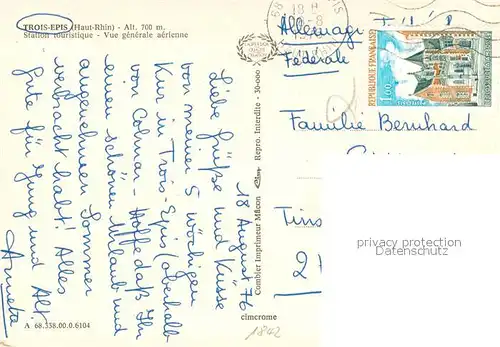 TROIS-EPIS (Haut-Rhin) - Alt. 700 m.
Station touristique - Vue générale aérienne
68
18 H
-8
Allemagne
Fédérale
REPUBLIQUE FRANÇAISE
1,00
Familie Bernhard
Tins
2
privacy protection
watermark
18 August 76
Liebe Grüße und Küsse
von meiner 5 wöchigen
Kur in Trois-Epis (oberhalb
von Colmar - Hoffe daß Ihr
einen schönen Urlaub und
angenehmen Sommer
verbracht habt! Alles
Gute für Jung und Alt
Combier Imprimeur Mâcon
Repro. Interdite - 30-000
cimcrome
A 68.338.00.0.6104
1842